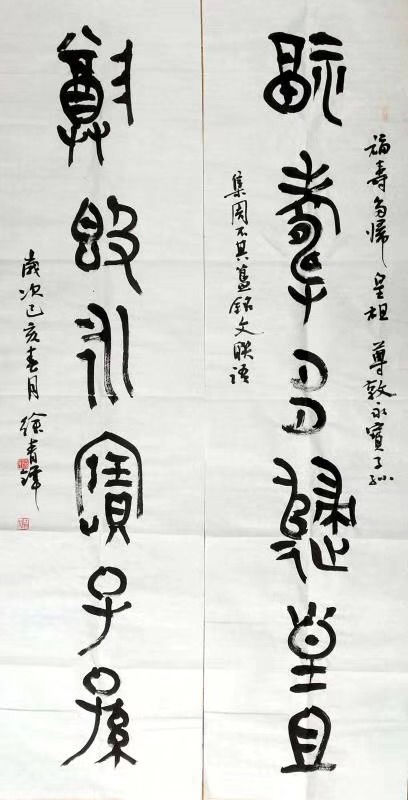 福壽多歸皇且
福壽多歸 皇祖 尊敦永寶子孫
集周不其簋銘文聯語
尊敦永寶子孫
歲次己亥春月 徐青鐸